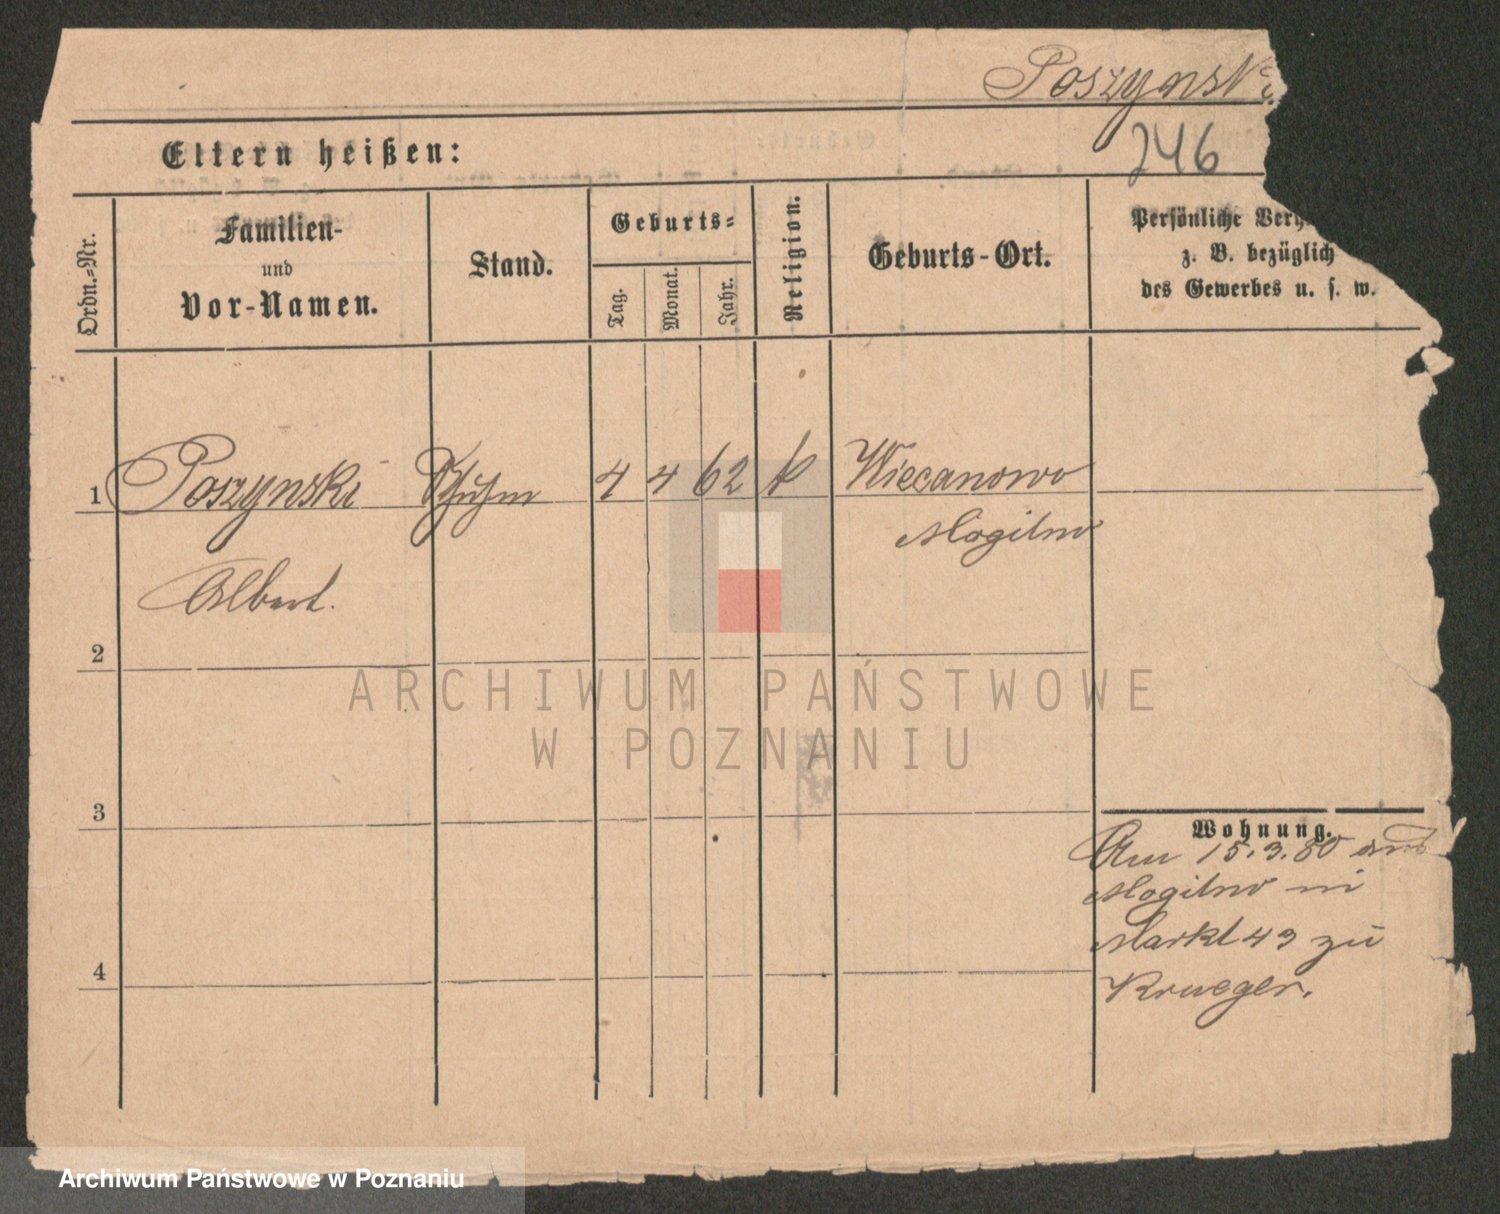 Poszynski
246
Eltern heißen:
Ordn.-Nr.
Familien-
und
Vor-Namen.
Stand.
Geburts-
Tag.
Monat.
Jahr.
Religion.
Geburts-Ort.
Persönliche
z. B. bezüglich
des Gewerbes u. s. w.
1 Poszynski 4 4 62 k Wiecanowo
Mogilno
Albert.
2
ARCHIWUM PAŃSTWOWE
W POZNANIU
3
Wohnung.
Am 15.3.80 aus
Mogilno in
Markt 43 zu
4
Krueger.
Archiwum Państwowe w Poznaniu